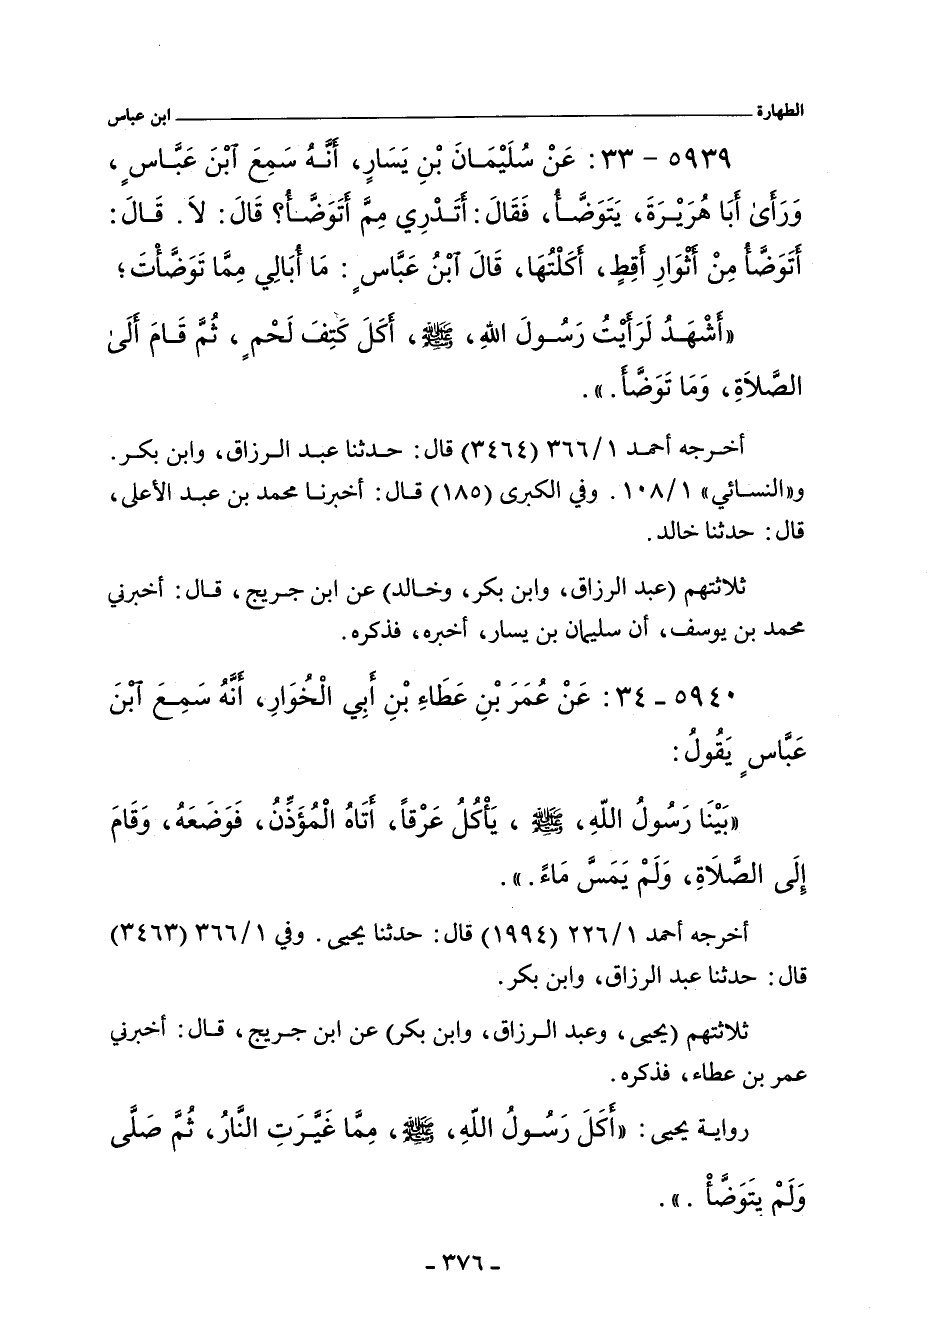 الطهارة ابن عباس
٥٩٣٩ - ٣٣: عَنْ سُلَيْمَانَ بْنِ يَسَارٍ، أَنَّهُ سَمِعَ آبْنَ عَبَّاسٍ،
وَرَأَىٰ أَبَا هُرَيْرَةَ، يَتَوَضَّأُ، فَقَالَ: أَتَدْرِي مِمَّ أَتَوَضَّأُ؟ قَالَ: لاَ. قَالَ:
أَتَوَضَّأُ مِنْ أَثْوَارِ أَقِطٍ، أَكَلْتُهَا، قَالَ آبْنُ عَبَّاسٍ: مَا أُبَالِي مِمَّا تَوَضَّأْتَ؛
«أَشْهَدُ لَرَأَيْتُ رَسُولَ اللهِ، ﷺ، أَكَلَ كَتِفَ لَحْمٍ، ثُمَّ قَامَ أَلَىٰ
الصَّلاَةِ، وَمَا تَوَضَّأَ.».
أخرجه أحمد ٣٦٦/١ (٣٤٦٤) قال: حدثنا عبد الرزاق، وابن بكر.
و«النسائي» ١٠٨/١. وفي الكبرى (١٨٥) قال: أخبرنا محمد بن عبد الأعلى،
قال: حدثنا خالد.
ثلاثتهم (عبد الرزاق، وابن بكر، وخالد) عن ابن جريج، قال: أخبرني
محمد بن يوسف، أن سليمان بن يسار، أخبره، فذكره.
٥٩٤٠ - ٣٤: عَنْ عُمَرَ بْنِ عَطَاءِ بْنِ أَبِي الْخُوَارِ، أَنَّهُ سَمِعَ آبْنَ
عَبَّاسٍ يَقُولُ:
«بَيْنَا رَسُولُ اللّهِ، ﷺ، يَأْكُلُ عَرْقاً، أَتَاهُ الْمُؤَذِّنُ، فَوَضَعَهُ، وَقَامَ
إِلَى الصَّلاَةِ، وَلَمْ يَمَسَّ مَاءً.».
أخرجه أحمد ٢٢٦/١ (١٩٩٤) قال: حدثنا يحيى. وفي ٣٦٦/١ (٣٤٦٣)
قال: حدثنا عبد الرزاق، وابن بكر.
ثلاثتهم (يحيى، وعبد الرزاق، وابن بكر) عن ابن جريج، قال: أخبرني
عمر بن عطاء، فذكره.
رواية يحيى: «أَكَلَ رَسُولُ اللّهِ، ﷺ، مِمَّا غَيَّرَتِ النَّارُ، ثُمَّ صَلَّى
وَلَمْ يَتَوَضَّأْ.».
- ٣٧٦ -